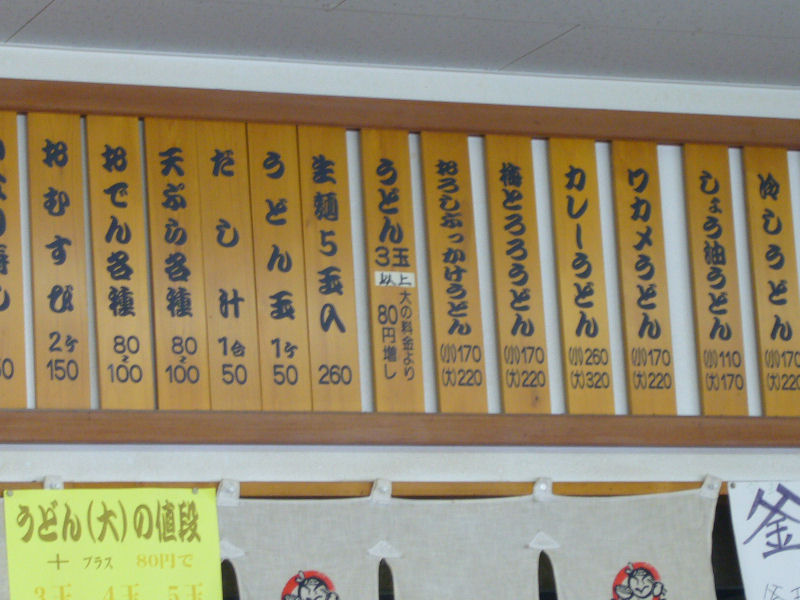 冷しうどん
(小)170
(大)220
しょう油うどん
(小)110
(大)170
ワカメうどん
(小)170
(大)220
カレーうどん
(小)260
(大)320
梅とろろうどん
(小)170
(大)220
おろしぶっかけうどん
(小)170
(大)220
うどん
3玉
以上
大の料金より
80円増し
生麺5玉入
260
うどん玉
1ケ
50
だし汁
1合
50
天ぷら各種
80
〜
100
おでん各種
80
〜
100
おむすび
2ケ
150
うどん(大)の値段
+ プラス 80円で
3玉 4玉 5玉
釜